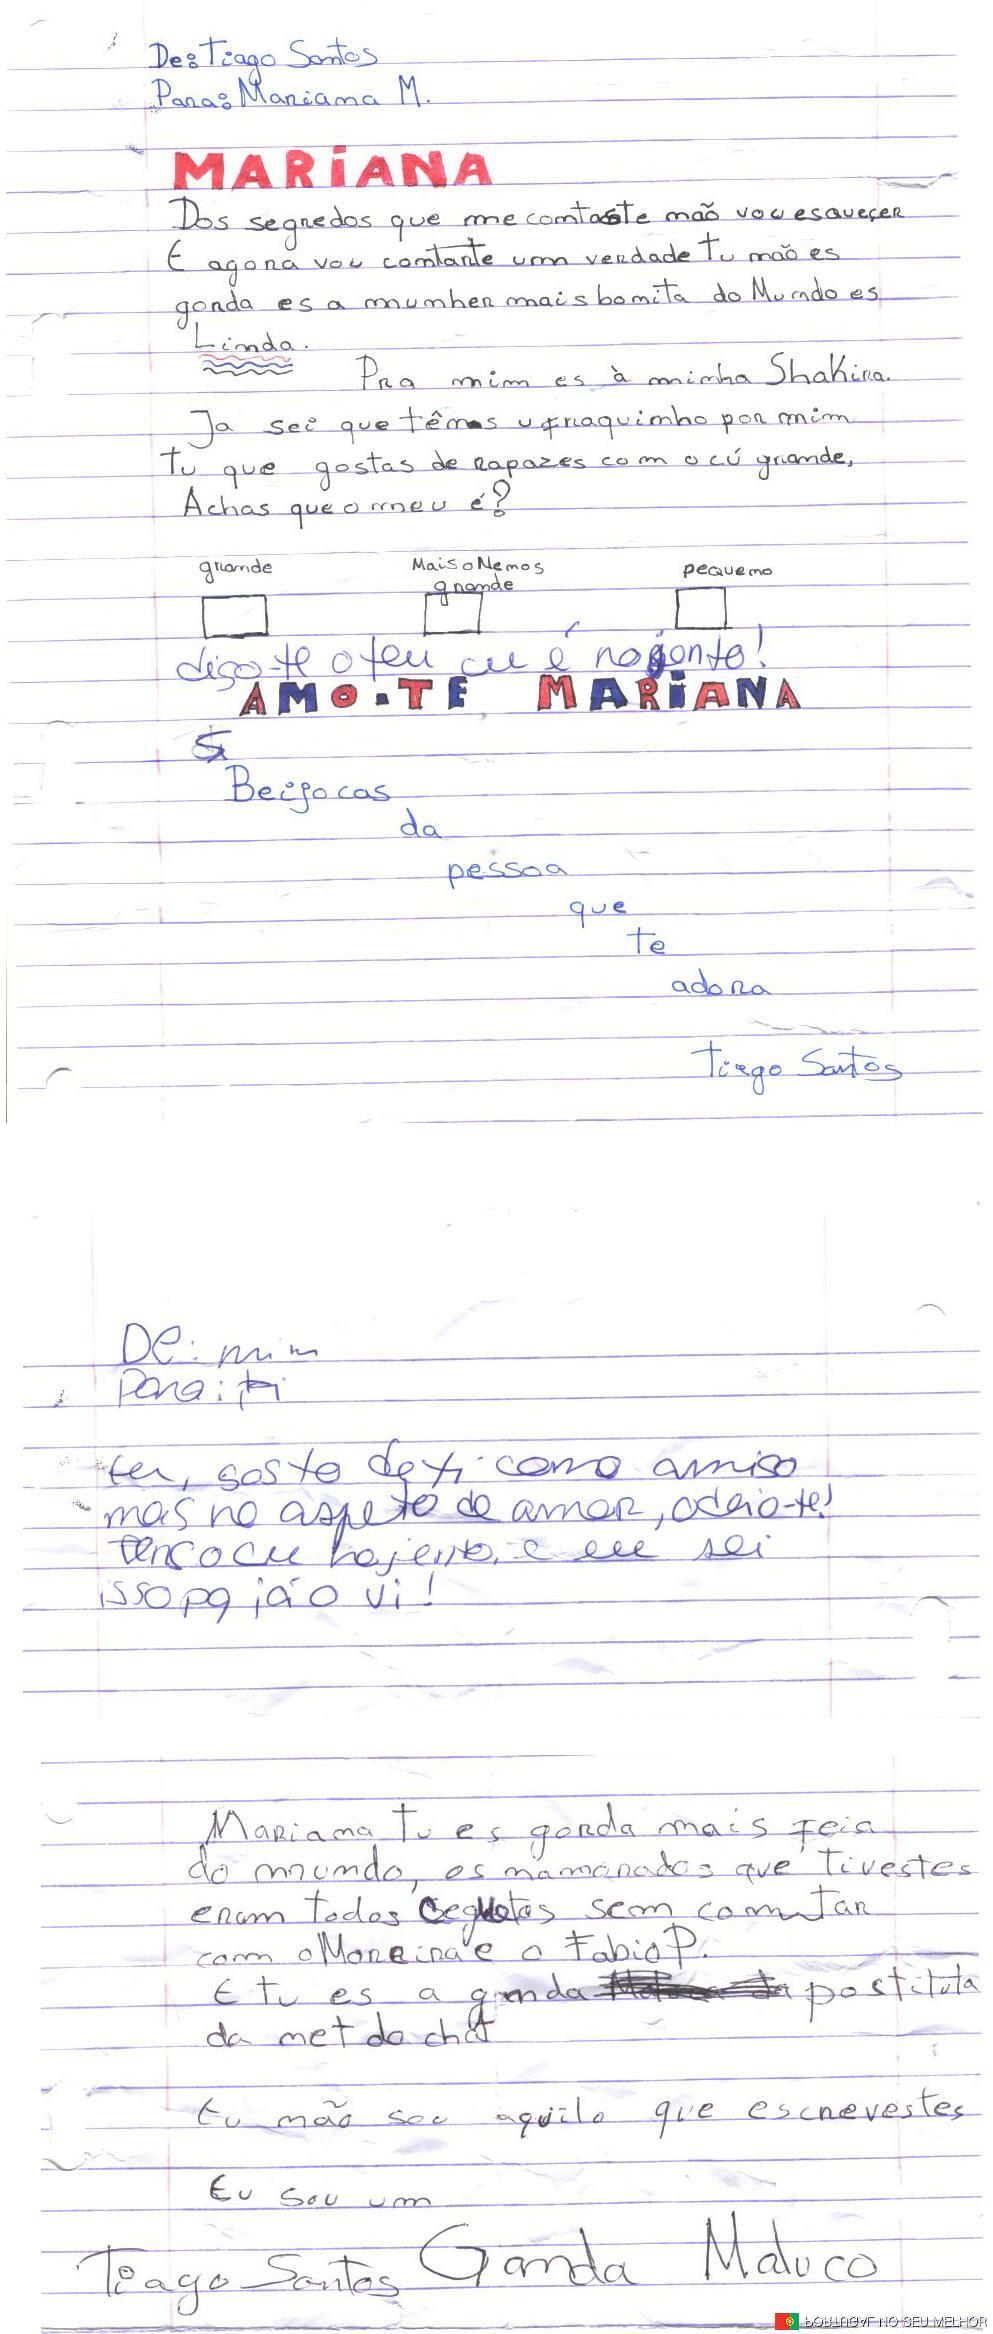 De: Tiago Santos
Para: Mariana M.
MARiANA
Dos segredos que me contaste mão vou esqueçer
E agora vou contarte um verdade tu mão es
gorda es a munher mais bonita do Mundo es
Linda.
Pra mim es à minha Shakira.
Ja sei que têms u fraquinho por mim
Tu que gostas de rapazes com o cú grande,
Achas que o meu é?
grande
Mais o Nemos
grande
pequeno
digo-te o teu cu é nojento!
AMO-TE MARiANA
Beijocas
da
pessoa
que
te
adora
Tiago Santos
De: mim
Para: ti
gosto de ti como amigo
mas no aspeto de amor, odeio-te!
cu nojento, e eu sei
isso pq já o vi!
Mariana tu es gorda mais feia
do mundo, es namorados que tivestes
eram todos segetas sem contar
com o Moreira e o Fabio P.
E tu es a ganda postituta
da met do chat
Eu mão sou aquilo que escrevestes
Eu sou um
Tiago Santos Ganda Maluco
PORTUGAL NO SEU MELHOR